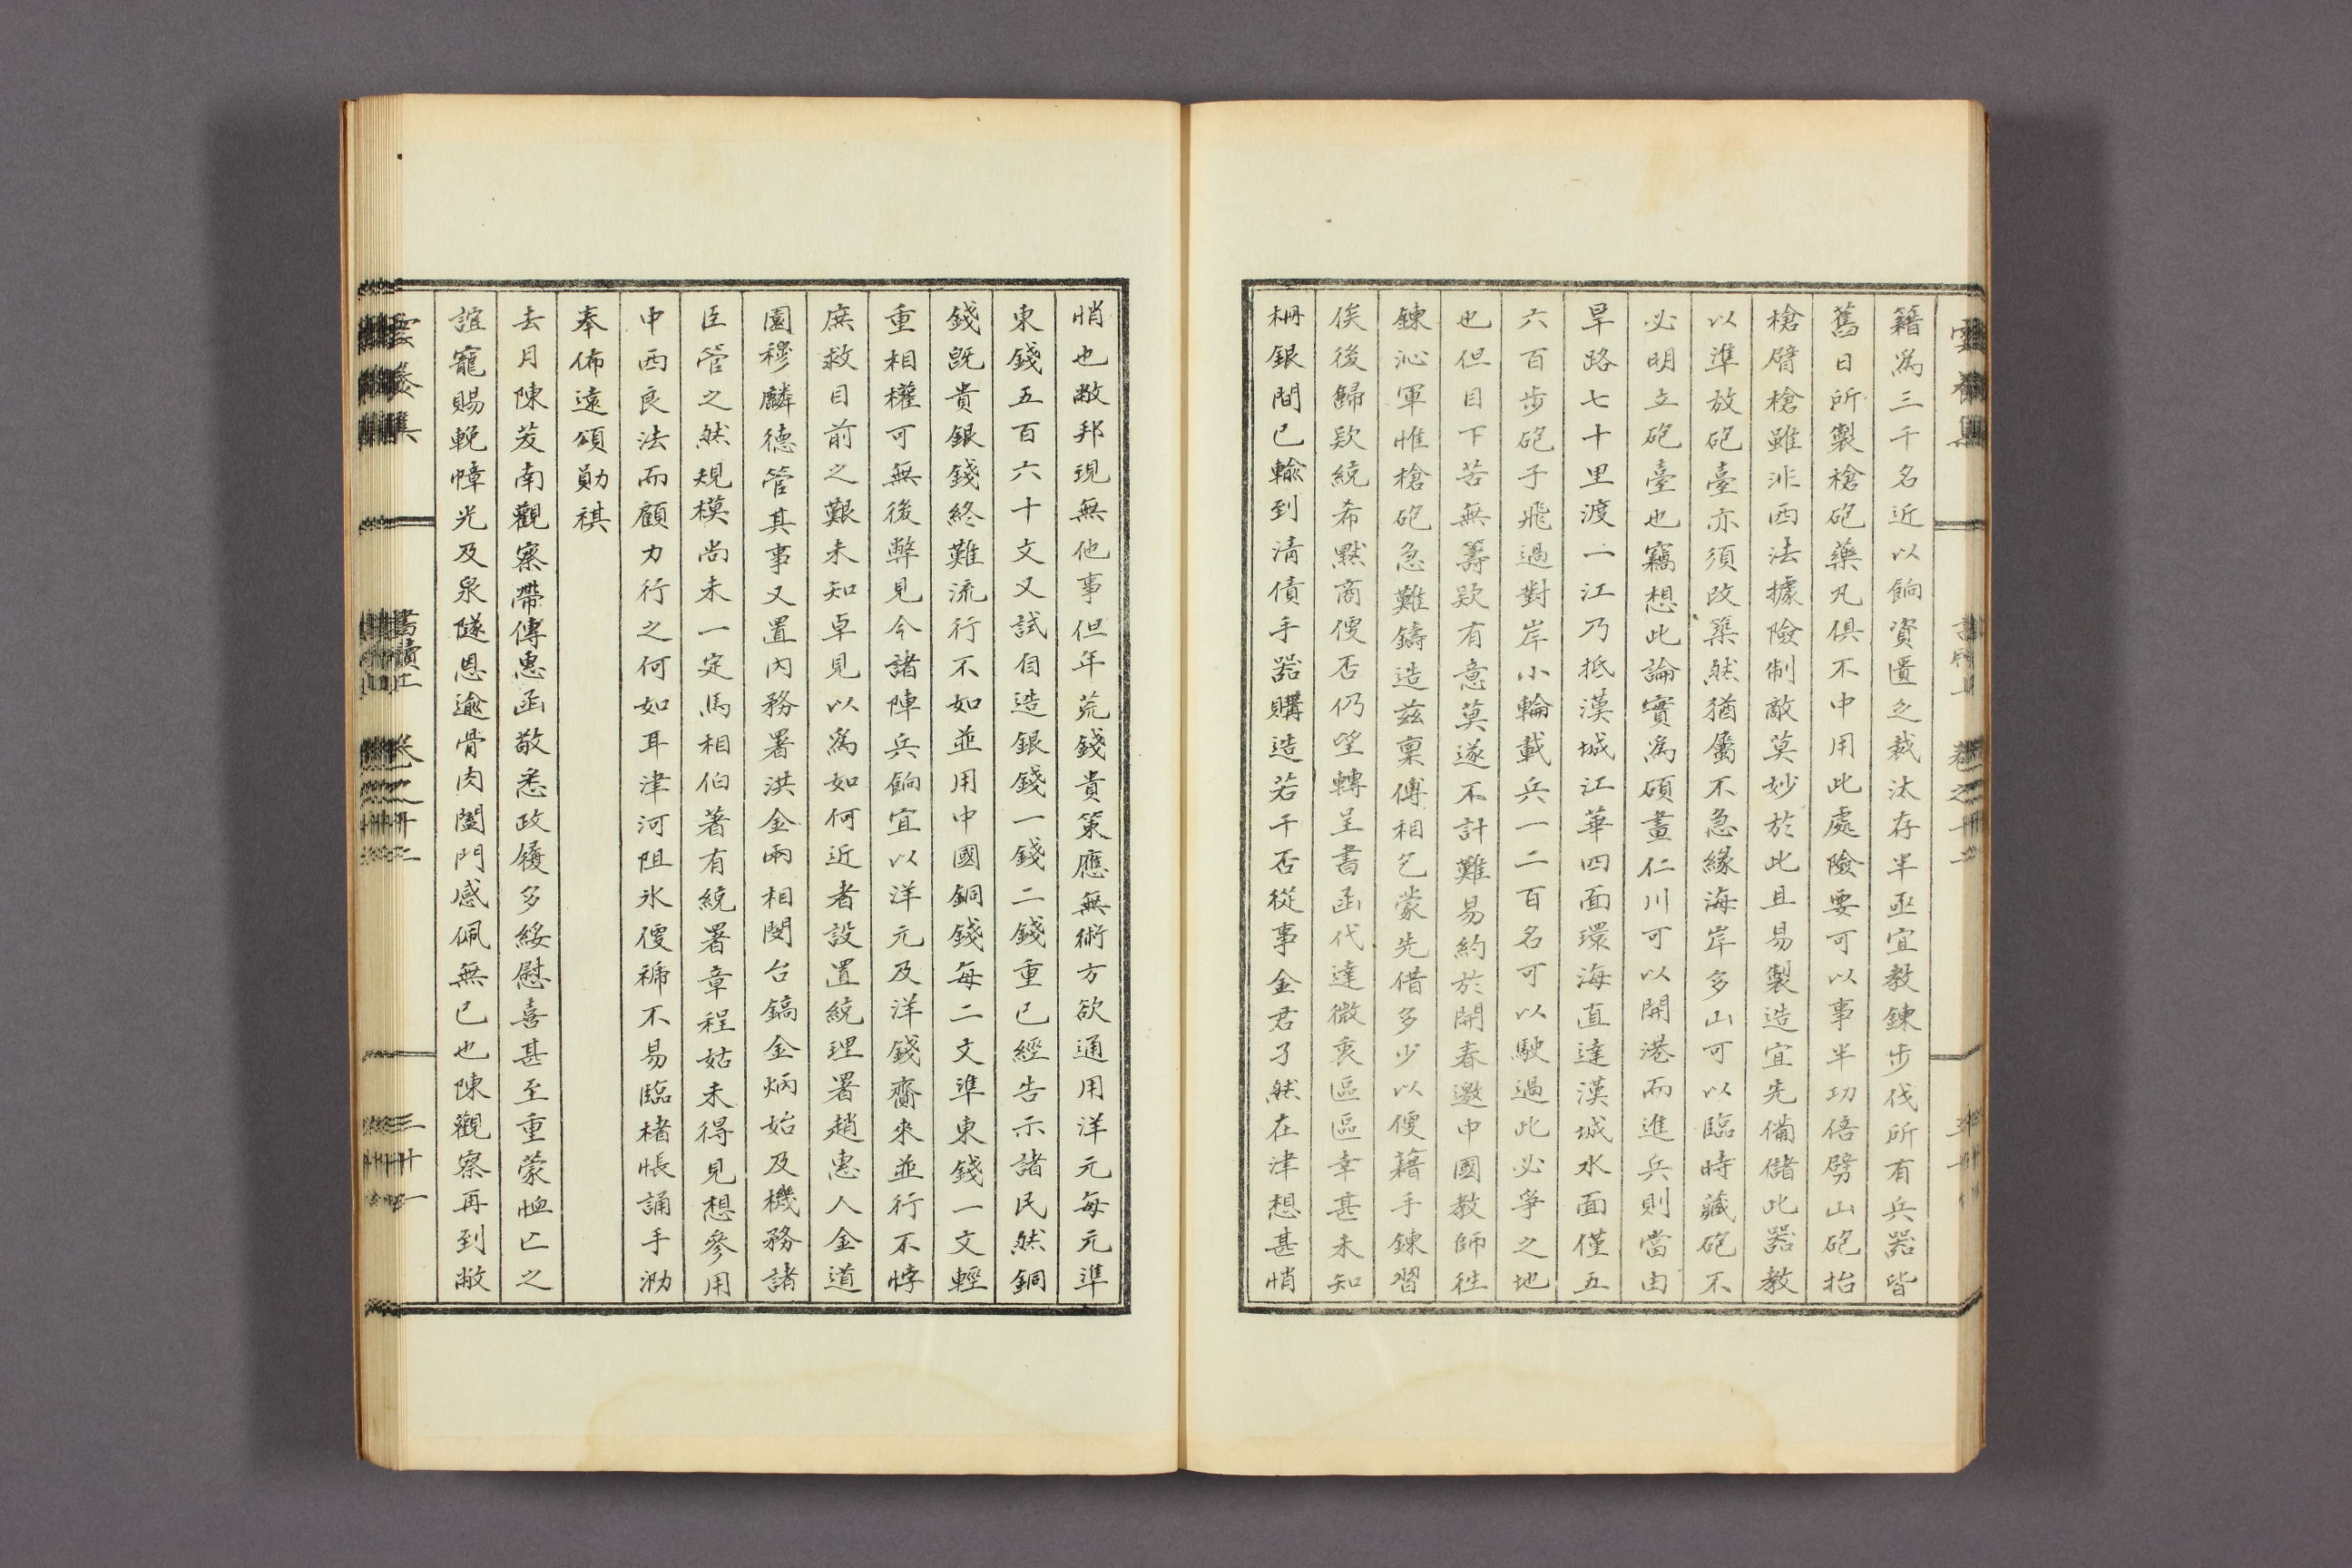 籍爲三千名近以餉資匱乏裁汰存半亟宜教鍊步伐所有兵器皆
舊日所製槍砲藥丸俱不中用此處險要可以事半功倍劈山砲抬
槍臂槍雖非西法據險制敵莫妙於此且易製造宜先備儲此器教
以準放砲臺亦須改築然猶屬不急緣海岸多山可以臨時藏砲不
必明立砲臺也竊想此論實爲碩畫仁川可以開港而進兵則當由
旱路七十里渡一江乃抵漢城江華四面環海直達漢城水面僅五
六百步砲子飛過對岸小輪載兵一二百名可以駛過此必爭之地
也但目下苦無籌款有意莫遂不計難易約於開春邀中國教師往
鍊沁軍惟槍砲急難鑄造茲稟傅相乞蒙先借多少以便藉手鍊習
俟後歸款統希黙商便否仍望轉呈書函代達微衷區區幸甚未知
柵銀間已輸到淸債手器購造若干否從事金君孑然在津想甚悄
悄也敝邦現無他事但年荒錢貴策應無術方欲通用洋元每元準
東錢五百六十文又試自造銀錢一錢二錢重已經告示諸民然銅
錢旣貴銀錢終難流行不如並用中國銅錢每二文準東錢一文輕
重相權可無後弊見今諸陣兵餉宜以洋元及洋錢齎來並行不悖
庶救目前之艱未知卓見以爲如何近者設置統理署趙惠人金道
園穆麟德管其事又置內務署洪金兩相閔台鎬金炳始及機務諸
臣管之然規模尚未一定馬相伯著有統署章程姑未得見想參用
中西良法而顧力行之何如耳津河阻氷便禠不易臨楮悵誦手泐
奉佈遠頌勛祺
去月陳茇南觀察帶傳惠函敬悉政履多綏慰喜甚至重蒙恤亡之
誼寵賜輓幛光及泉隧恩逾骨肉闔門感佩無已也陳觀察再到敝
雲養集
書牘上
卷之十二
三十一